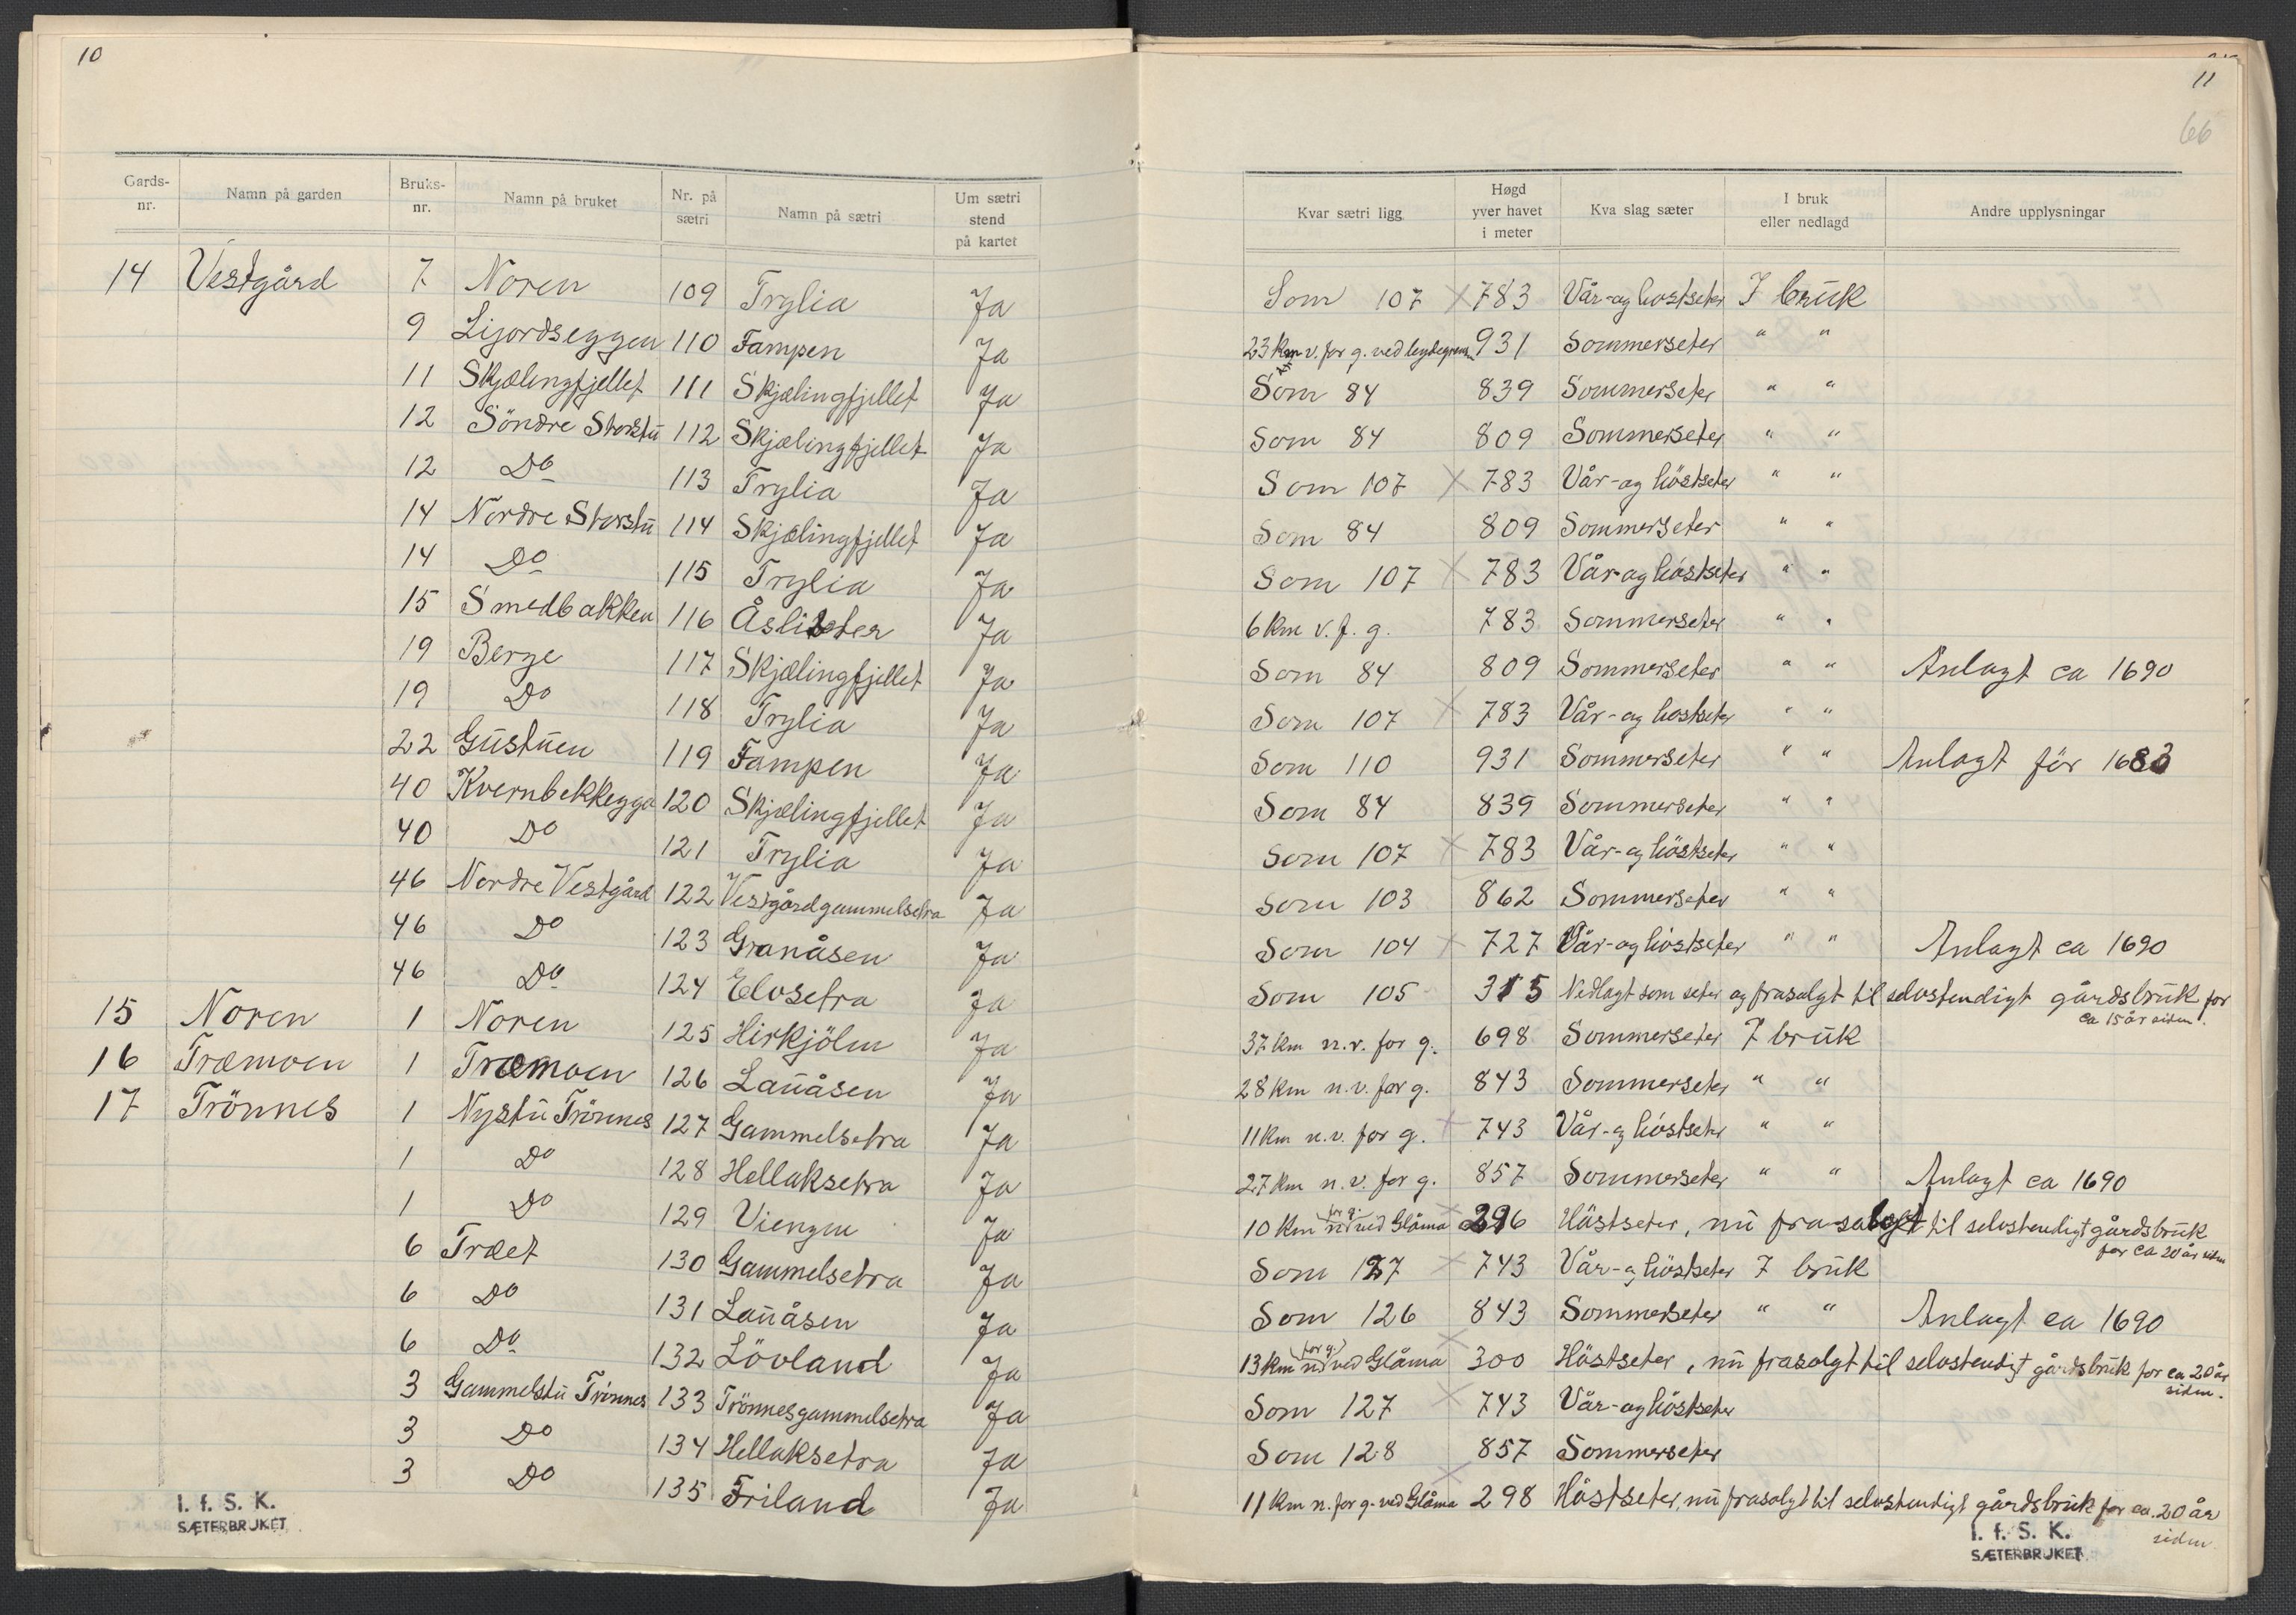 10
Gards-nr. Namn på garden Bruks-nr. Namn på bruket Nr. på sætri Namn på sætri Um sætri stend på kartet
14 Vestgård 7 Noren 109 Trylia Ja
9 Lijordseggen 110 Fampen Ja
11 Skjælingfjellet 111 Skjælingfjellet Ja
12 Söndre Storstu 112 Skjælingfjellet Ja
12 Do 113 Trylia Ja
14 Nordre Storstu 114 Skjælingfjellet Ja
14 Do 115 Trylia Ja
15 Smedbakken 116 Åsliseter Ja
19 Berge 117 Skjælingfjellet Ja
19 Do 118 Trylia Ja
22 Gustuen 119 Fampen Ja
40 Kvernbekkegga 120 Skjælingfjellet Ja
40 Do 121 Trylia Ja
46 Nordre Vestgård 122 Vestgårdgammelsetra Ja
46 Do 123 Granåsen Ja
46 Do 124 Elvsetra Ja
15 Noren 1 Noren 125 Hirkjölen Ja
16 Træmoen 1 Træmoen 126 Lauåsen Ja
17 Trönnes 1 Nystu Trönnes 127 Gammelsetra Ja
1 Do 128 Hellaksetra Ja
1 Do 129 Viengen Ja
6 Træet 130 Gammelsetra Ja
6 Do 131 Lauåsen Ja
6 Do 132 Lövland Ja
3 Gammelstu Trönnes 133 Trönnesgammelsetra Ja
3 Do 134 Hellaksetra Ja
3 Do 135 Friland Ja
I. f. S. K.
SÆTERBRUKET
11
66
Kvar sætri ligg Høgd yver havet i meter Kva slag sæter I bruk eller nedlagd Andre upplysningar
Som 107 × 783 Vår- og høstseter I bruk
23 km v. for g. ved bygdegrensen 931 Sommerseter " "
Som 84 839 Sommerseter " "
Som 84 809 Sommerseter " "
Som 107 × 783 Vår- og höstseter " "
Som 84 809 Sommerseter " "
Som 107 × 783 Vår og höstseter " "
6 km v. f. g. 783 Sommerseter " "
Som 84 809 Sommerseter " " Anlagt ca 1690
Som 107 × 783 Vår- og höstseter " "
Som 110 931 Sommerseter " " Anlagt för 1683
Som 84 839 Sommerseter " "
Som 107 × 783 Vår- og höstseter " "
Som 103 862 Sommerseter " "
Som 104 × 727 Vår- og höstseter " " Anlagt ca 1690
Som 105 315 Nedlagt som seter og frasolgt til selvstendigt gårdsbruk for
ca 15 år siden.
37 km n.v. for g. 698 Sommerseter I bruk
28 km n.v. for g. 843 Sommerseter " "
11 km n.v. for g. × 743 Vår- og höstseter " "
27 km n.v. for g. 857 Sommerseter " " Anlagt ca 1690
10 km n for g. ved Glåma × 296 Höstseter, nu frasolgt til selvstendigt gårdsbruk
for ca 20 år siden
Som 127 × 743 Vår- og höstseter I bruk
Som 126 843 Sommerseter " " Anlagt ca 1690
13 km n for g. ved Glåma × 300 Höstseter, nu frasolgt til selvstendigt gårdsbruk for ca 20 år
siden.
Som 127 × 743 Vår- og höstseter
Som 128 857 Sommerseter
11 km n. for g. ved Glåma × 298 Höstseter, nu frasolgt til selvstendigt gårdsbruk for ca. 20 år
siden.
I. f. S. K.
SÆTERBRUKET